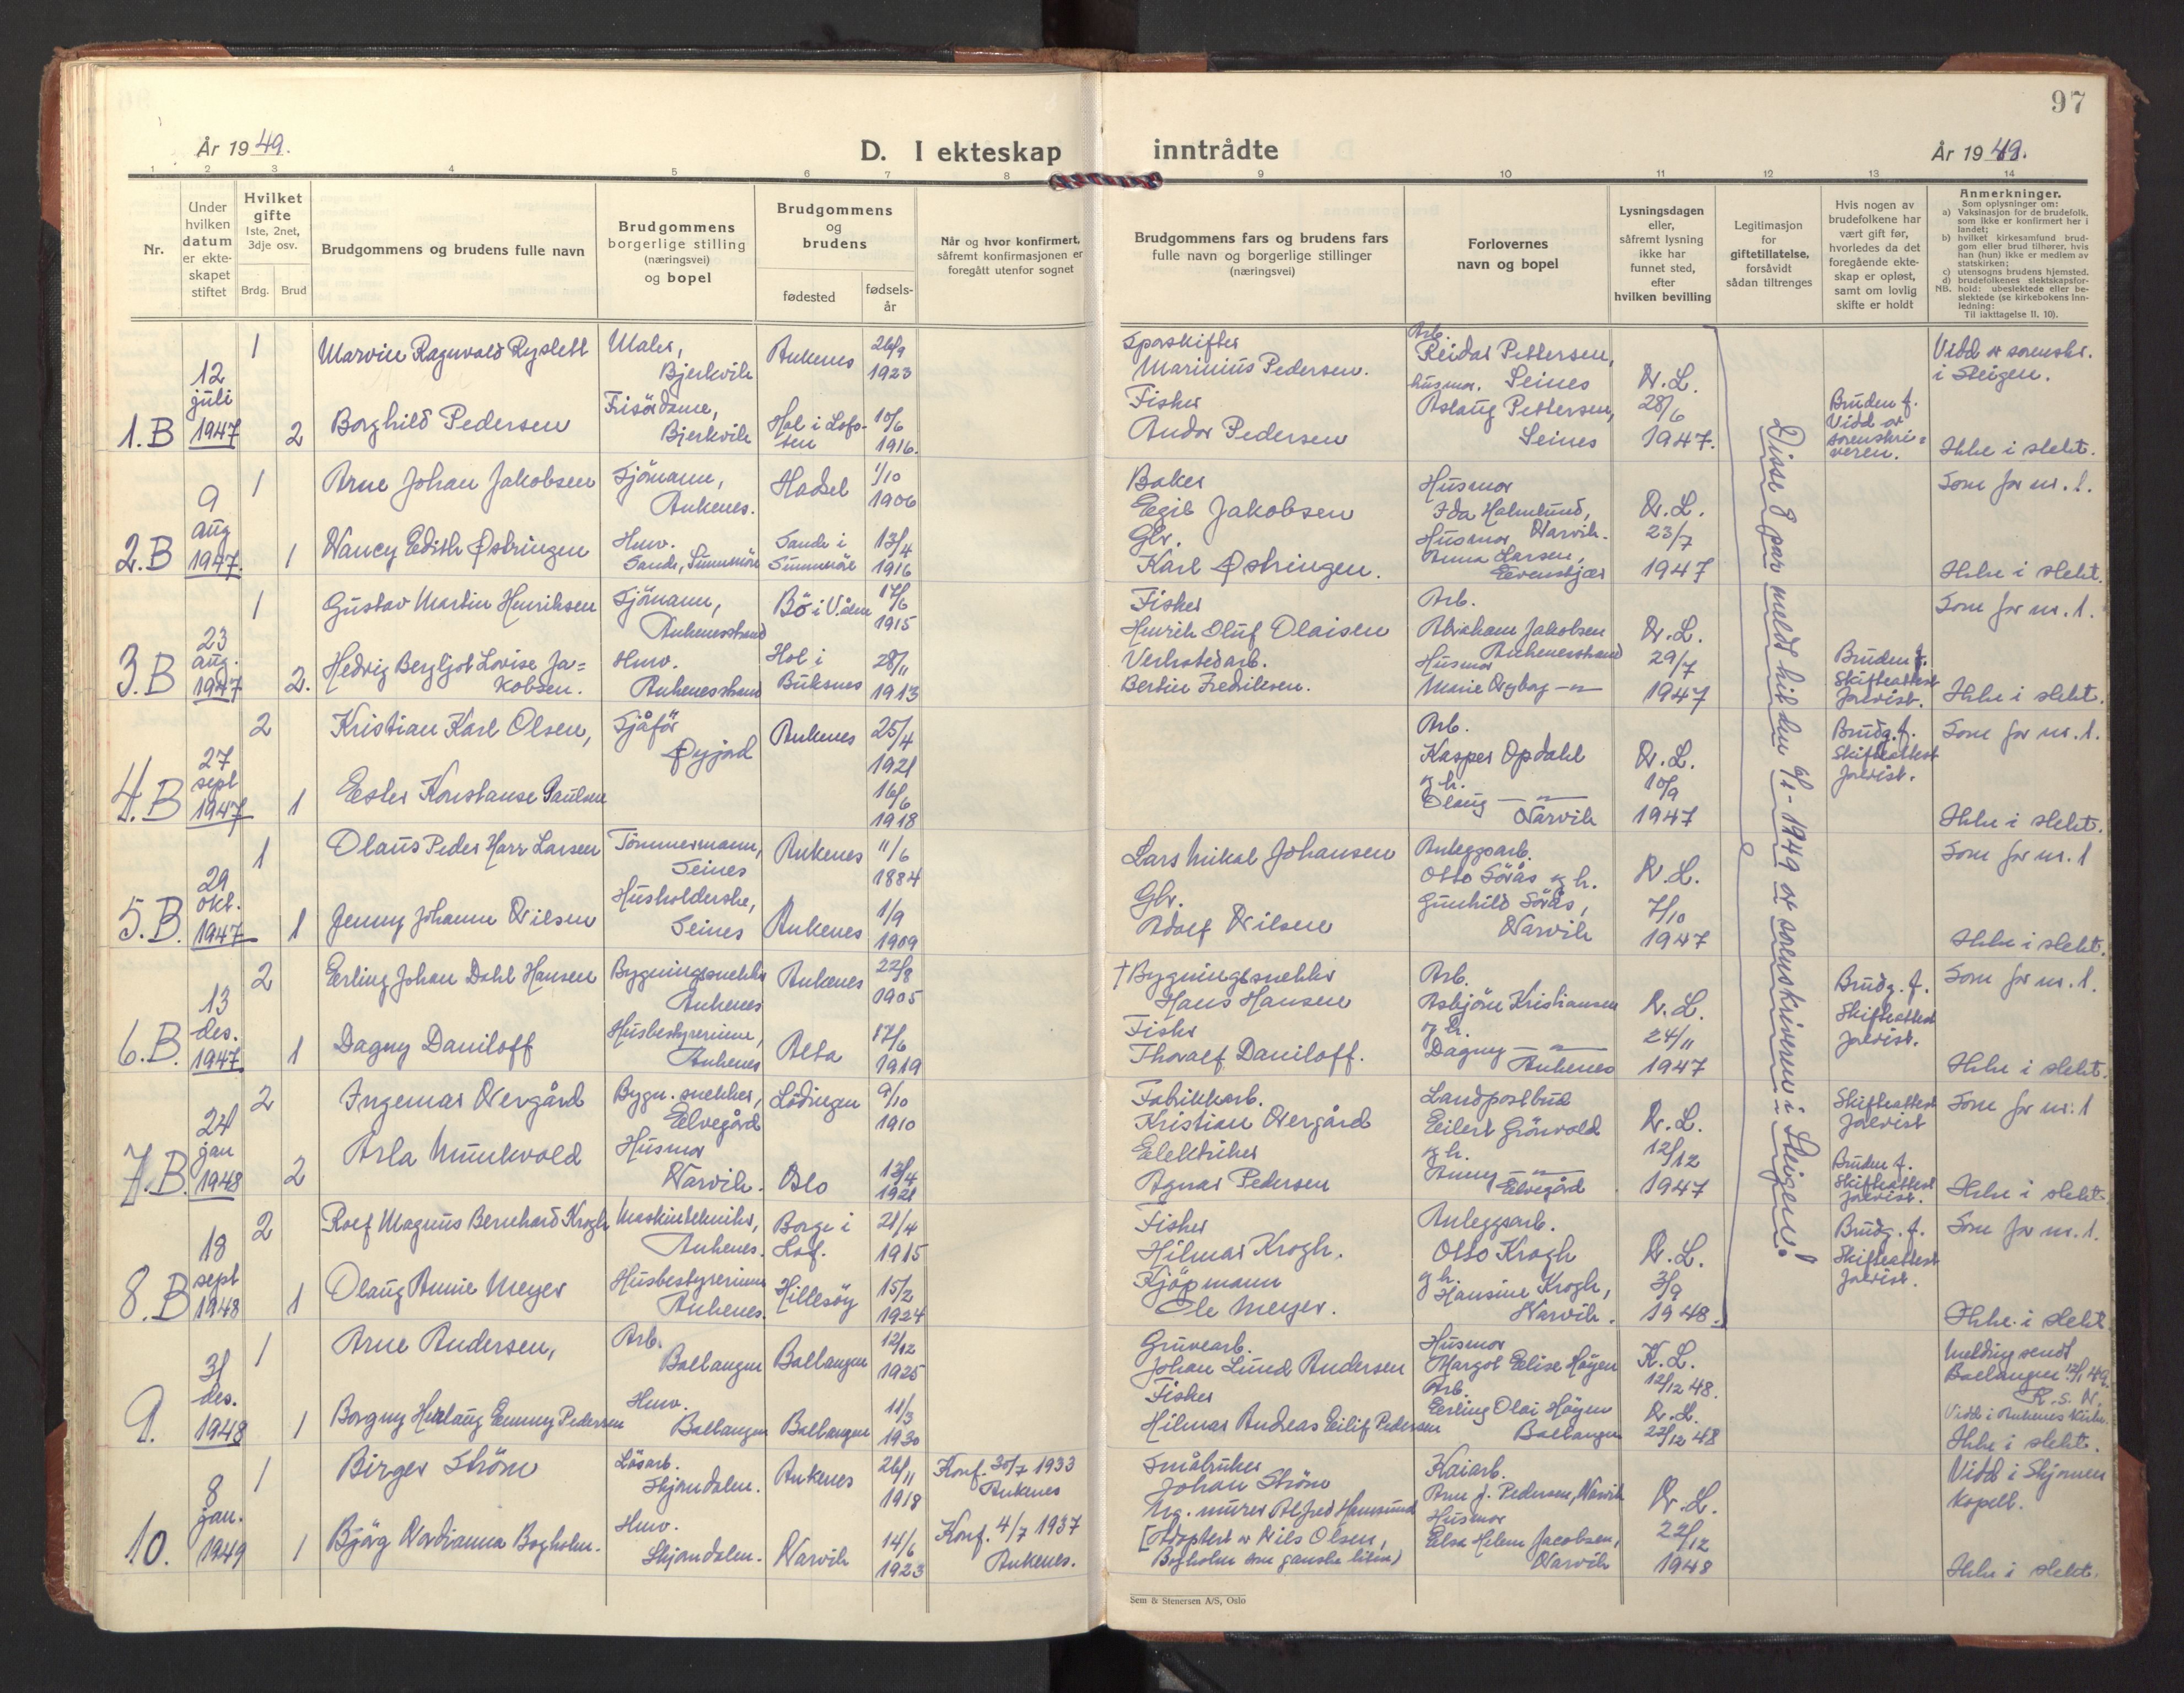 97
År 1949.
D. I ekteskap inntrådte
År 1949.
1 2 3 4 5 6 7 8 9 10 11 12 13 14
Nr.
Under hvilken datum er ekteskapet stiftet
Hvilket gifte
1ste, 2net, 3dje osv.
Brdg. Brud
Brudgommens og brudens fulle navn
Brudgommens borgerlige stilling (næringsvei) og bopel
Brudgommens og brudens
fødested
fødselsår
Når og hvor konfirmert, såfremt konfirmasjonen er foregått utenfor sognet
Brudgommens fars og brudens fars fulle navn og borgerlige stillinger (næringsvei)
Forlovernes navn og bopel
Lysningsdagen eller, såfremt lysning ikke har funnet sted, efter hvilken bevilling
Legitimasjon for giftetillatelse, forsåvidt sådan tiltrenges
Hvis nogen av brudefolkene har vært gift før, hvorledes da det foregående ekteskap er opløst, samt om lovlig skifte er holdt
Anmerkninger.
Som oplysninger om:
a) Vaksinasjon for de brudefolk, som ikke er konfirmert her i landet;
b) hvilket kirkesamfund brudgom eller brud tilhører, hvis han (hun) ikke er medlem av statskirken;
c) utensogns brudens hjemsted.
d) brudefolkenes slektskapsforhold: ubeslektede eller beslektede (se kirkebokens Innledning:
NB.
Til iakttagelse II. 10).
1.B 12 juli 1947
1 Marvin Ragnvald Ryslett Maler, Bjerkvik Ankenes 26/9 1923
Sporskifter Marinius Pedersen.
Arb. Reidar Pettersen, Seines
N.L. 28/6 1947.
Vidd av sorenskr. i Steigen.
2 Borghild Pedersen Frisördame, Bjerkvik Hol i Lofoten 10/6 1916.
Fisker Andor Pedersen
husmor. Aslaug Pettersen, Seines
Bruden f. Vidd av sorenskriveren.
Ikke i slekt.
2.B 9 aug 1947
1 Arne Johan Jakobsen Sjömann, Ankenes. Hadsel 1/10 1906
Baker Egil Jakobsen
Husmor Ida Holmlund, Narvik.
N.L. 23/7 1947
Som for nr. 1.
1 Nancy Edith Østringen Husv. Sande, Sunnmöre Sande i Sunnmöre 13/4 1916
Gbr. Karl Østringen.
Husmor Anna Larsen, Evenskjær
Ikke i slekt.
3.B 23 aug. 1947
1 Gustav Martin Henriksen Sjömann, Ankenesstrand Bö i V.ålen 17/6 1915
Fisker Henrik Oluf Olaisen
Arb. Abraham Jakobsen Ankenesstrand
N.L. 29/7 1947
Som for nr. 1.
2. Hedvig Bergljot Lovise Jakobsen. Husv. Ankenesstrand Hol i Buksnes 28/11 1913
Verkstedarb. Bertin Fredriksen.
Husmor Marie Nyborg —"—
Bruden f. Skifteattest forevist.
Ikke i slekt.
4.B 27 sept 1947
2 Kristian Karl Olsen, Sjåför Øyjord Ankenes 25/4 1921
Arb. Kasper Opdahl
N.L. 10/9 1947
Brudg. f. Skifteattest forevist.
Som for nr. 1.
1 Ester Konstanse Paulsen 16/6 1918
og h. Olaug —"— Narvik
Ikke i slekt.
5.B. 29 okt. 1947
1 Olaus Peder Harr Larsen Tömmermann, Seines Ankenes 11/6 1884
Lars Mikal Johansen
Anleggsarb. Otto Sörås og h.
N.L. 7/10 1947
Som for nr. 1
1 Jenny Johanne Nilsen Husholderske, Seines Ankenes 1/9 1909
Gbr. Adolf Nilsen
Gunhild Sörås, Narvik
Ikke i slekt.
6.B. 13 des. 1947
2 Erling Johan Dahl Hansen Bygningssnekker Ankenes Ankenes 22/8 1905
† Bygningssnekker Hans Hansen
Arb. Asbjörn Kristiansen
N.L. 24/11 1947
Brudg. f. Skifteattest forevist.
Som for nr. 1.
1 Dagny Daniloff Husbestyrerinne, Ankenes Alta 17/6 1919
Fisker Thoralf Daniloff.
og h. Dagny —"— Ankenes
Ikke i slekt.
7.B. 24 jan 1948
2 Ingemar Nergård Bygn. snekker, Elvegård Lödingen 9/10 1910
Fabrikkarb. Kristian Nergård
Landpostbud Eilert Grönvold
N.L. 12/12 1947
Skifteattest forevist
Som for nr. 1
2 Arla Munkvold Husmor Narvik. Oslo 13/4 1921
Elektriker Agnar Pedersen
og h. Anny —"— Elvegård
Bruden f. Skifteattest forevist.
Ikke i slekt.
8.B 18 sept 1948
2 Rolf Magnus Bernhard Krogh Maskintekniker, Ankenes. Borge i Lof. 21/4 1915
Fisker Hilmar Krogh.
Anleggsarb. Otto Krogh
N.L. 3/9 1948.
Brudg. f. Skifteattest forevist.
Som for nr. 1.
1 Olaug Annie Meyer Husbestyrerinne Ankenes. Hillesöy 15/2 1924
Kjöpmann Ole Meyer.
og h. Hansine Krogh, Narvik.
Ikke i slekt
Disse 8 par meldt hit den 6/1-1949 av sorenskriveren i Steigen!
9. 31 des. 1948
1 Arne Andersen, Arb. Ballangen Ballangen 12/12 1925
Gruvearb. Johan Lund Andersen
Husmor Margot Elise Höyen
K.L. 12/12 48.
Melding sendt Ballangen 12/1 49. R.s.N.
1 Borgny Herlaug Emmy Pedersen Husv. Ballangen Ballangen 11/3 1930
Fisker Hilmar Andreas Eilif Pedersen
Arb. Erling Olai Höyen Ballangen
N.L. 22/12 48
Vidd i Ankenes kirke. Ikke i slekt.
10. 8 jan. 1949
1 Birger Ström Lösarb. Skjomdalen. Ankenes 26/11 1918
Konf. 30/7 1933 Ankenes
Småbruker Johan Ström
Kaiarb. Arne J. Pedersen, Narvik
N.L. 22/12 1948
Vidd i Skjomen kapell.
1 Björg Nordianna Bogholm. Husv. Skjomdalen. Narvik 14/6 1923
Konf. 4/7 1937 Ankenes.
Ug. murer Alfred Hamsund [Adoptert av Nils Olsen, Bogholm som ganske liten)
Husmor Elsa Helene Jacobsen, Narvik
Ikke i slekt.
Sem & Stenersen A/S, Oslo